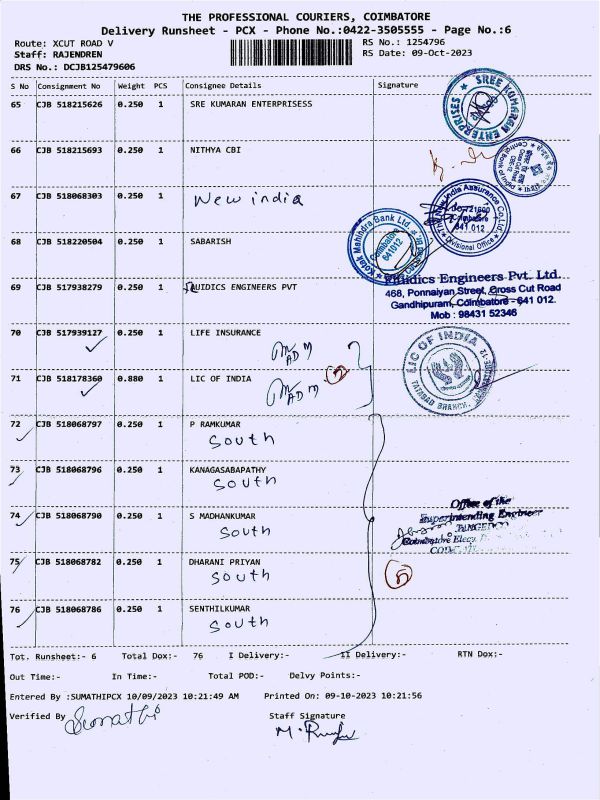 THE PROFESSIONAL COURIERS, COIMBATORE
Delivery Runsheet - PCX - Phone No.:0422-3505555 - Page No.:6
Route: XCUT ROAD V RS No.: 1254796
Staff: RAJENDREN RS Date: 09-Oct-2023
DRS No.: DCJB125479606
S No Consignment No Weight PCS Consignee Details Signature
65 CJB 518215626 0.250 1 SRE KUMARAN ENTERPRISESS
★ SREE KUMARAN ENTERPRISES
66 CJB 518215693 0.250 1 NITHYA CBI
67 CJB 518068303 0.250 1 New india
The New India Assurance Co. Ltd.
Coimbatore
641 012
Divisional Office
68 CJB 518220504 0.250 1 SABARISH
Kotak Mahindra Bank Ltd.
Coimbatore
641012
69 CJB 517938279 0.250 1 FLUIDICS ENGINEERS PVT
Fluidics Engineers Pvt. Ltd.
468, Ponnaiyan Street, Cross Cut Road
Gandhipuram, Coimbatore - 641 012.
Mob : 98431 52346
70 CJB 517939127 0.250 1 LIFE INSURANCE
71 CJB 518178360 0.880 1 LIC OF INDIA
LIC OF INDIA
TATABAD BRANCH, COIMBATORE-12
72 CJB 518068797 0.250 1 P RAMKUMAR
South
73 CJB 518068796 0.250 1 KANAGASABAPATHY
South
74 CJB 518068790 0.250 1 S MADHANKUMAR
South
Office of the
Superintending Engineer
TANGEDCO
Coimbatore Elecy.
75 CJB 518068782 0.250 1 DHARANI PRIYAN
South
5
76 CJB 518068786 0.250 1 SENTHILKUMAR
South
Tot. Runsheet:- 6 Total Dox:- 76 I Delivery:- II Delivery:- RTN Dox:-
Out Time:- In Time:- Total POD:- Delvy Points:-
Entered By :SUMATHIPCX 10/09/2023 10:21:49 AM Printed On: 09-10-2023 10:21:56
Verified By Sumathi Staff Signature